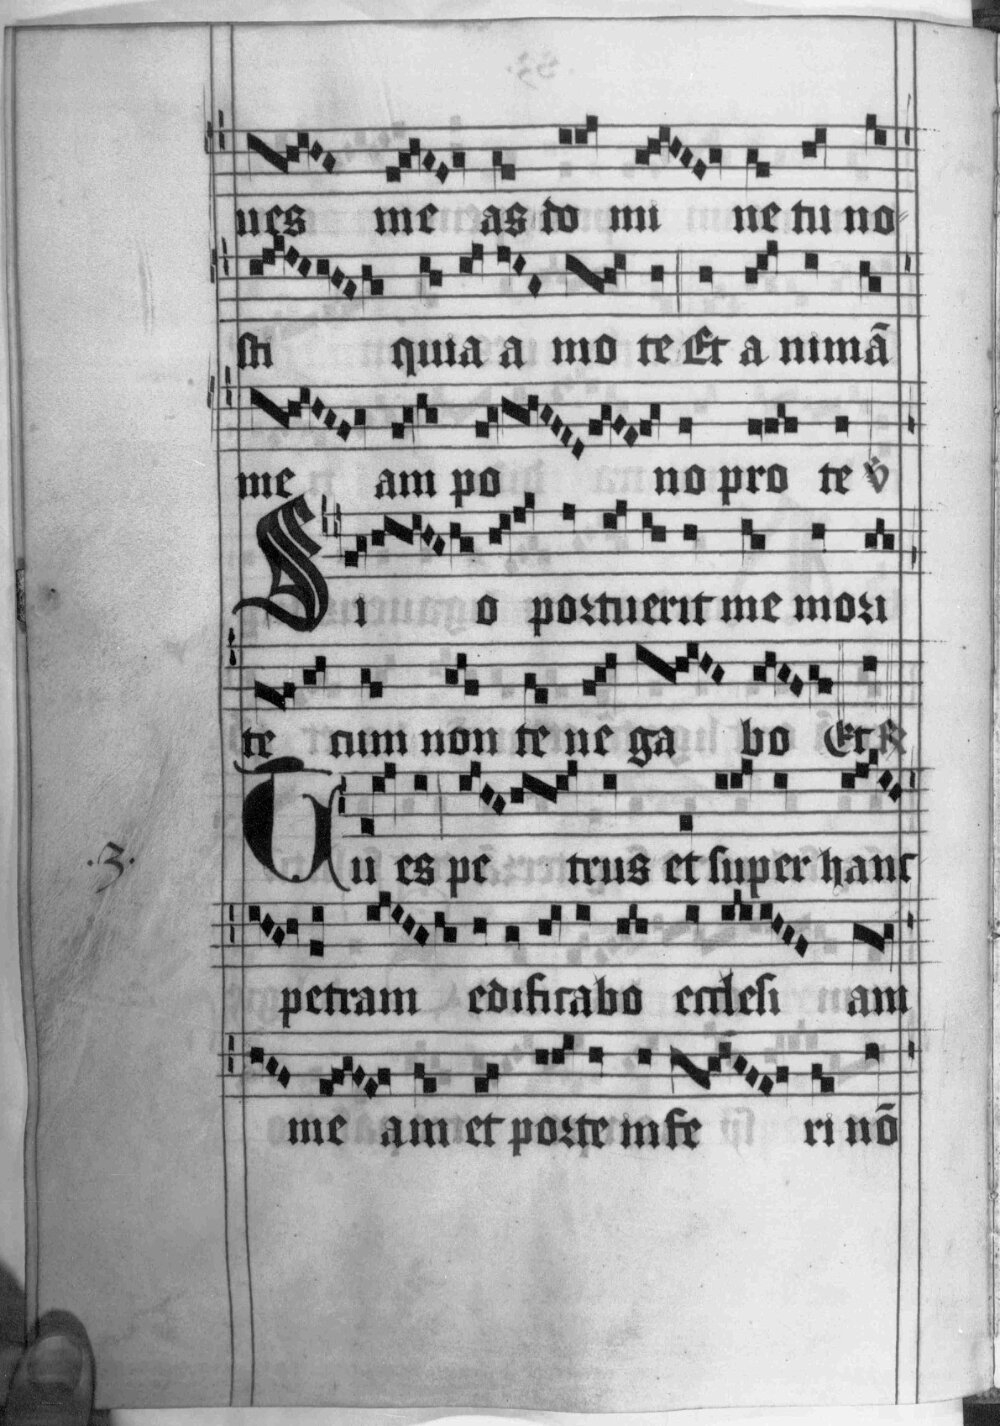 ues me as do mi ne tu no
sti quia a mo te Et a nimā
me am po no pro te v̇
Si o portuerit me mori
te cum non te ne ga bo Et R
Tu es pe trus et super hanc
.3.
petram edificabo ecclesi am
me am et porte infe ri nō